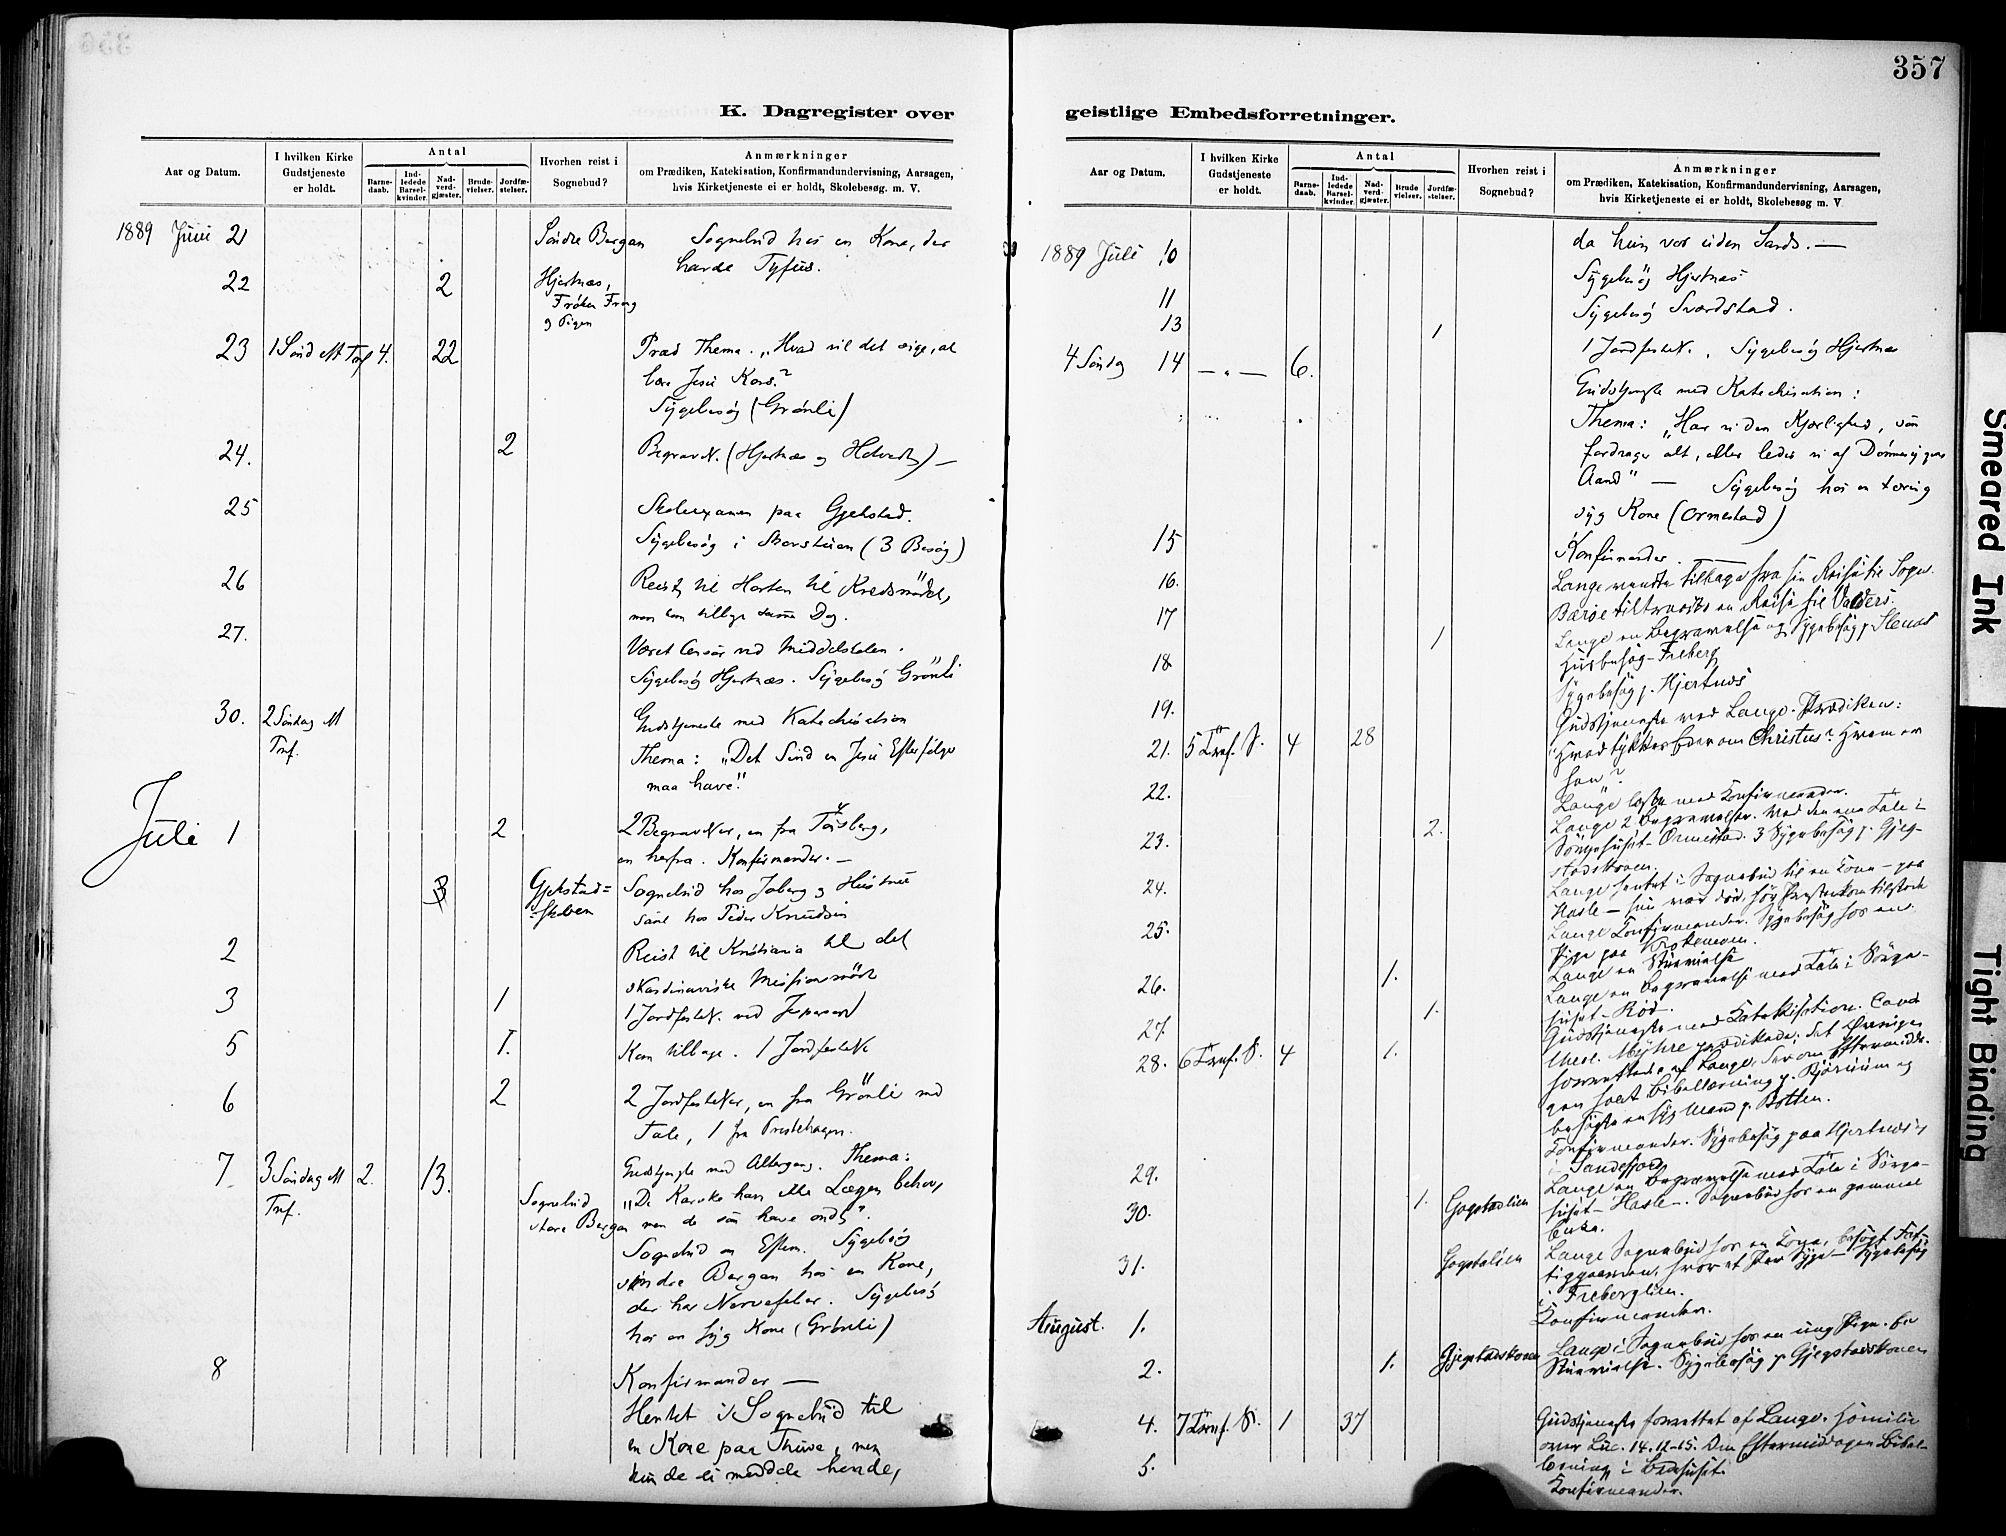 357
K. Dagregister over
Aar og Datum.
I hvilken Kirke Gudstjeneste er holdt.
Antal
Barnedaab.
Indledede Barselkvinder.
Nadverdgjæster.
Brudevielser.
Jordfæstelser.
Hvorhen reist i Sognebud?
Anmærkninger
om Prædiken, Katekisation, Konfirmandundervisning, Aarsagen,
hvis Kirketjeneste ei er holdt, Skolebesøg. m. V.
1889 Juni 21 Søndre Bergan Sognebud hos en Kone, der
havde Tyfus.
22 2 Hjertnæs,
Frøken
og Pigen
23 1 Sønd eft Tref 4. 22 Præd Thema. "Hvad vil det sige, at
bære Jesu Kors?"
Sygebesøg (Grönli)
24. 2 Begravels. (Hjertnæs og
25 Skoleexamen paa Gjekstad.
Sygebesøg i (3 Besøg)
26 Reist til Horten til Kredsmödet,
men kom tilbage samme Dag.
27. Været Censor ved Middelskolen.
Sygebesøg Hjertnæs. Sygebesøg Grönli
30. 2 Söndag eft
Tref. Gudstjeneste med Katechisation
Thema: "Det Sind en Jesu Efterfölger
maa have."
Juli 1 2 2 Begravelser, en fra Tönsberg,
en herfra. Konfirmander. —
3 Gjekstad=
=skoven Sognebud hos Joberg og Hustru
samt hos Peder Knudsen
2 Reist til Kristiania til det
skandinaviske Missionsmöde
3 1 1 Jordfestelse. ved Jespersen
5 1. Kom tilbage. 1 Jordfestelse
6 2 2 Jordfestelser, en fra Grönli med
Tale, 1 fra Prestehagen.
7 3 Söndag eft
Tref. 2. 13. Sognebud
store Bergan Gudstjeneste med Altergang. Thema:
"De Karske have ikke Lægen behov,
men de som have ondt".
Sognebud om Efterm. Sygebesög
söndre Bergan hos en Kone,
der har Nervefeber. Sygebesög
hos en syg Kone (Grönli)
8 Konfirmander —
Hentet i Sognebud til
en Kone paa Thuve, men
kunde ei meddele hende,
geistlige Embedsforretninger.
Aar og Datum.
I hvilken Kirke Gudstjeneste er holdt.
Antal
Barnedaab.
Indledede Barselkvinder.
Nadverdgjæster.
Brudevielser.
Jordfæstelser.
Hvorhen reist i Sognebud?
Anmærkninger
om Prædiken, Katekisation, Konfirmandundervisning, Aarsagen,
hvis Kirketjeneste ei er holdt, Skolebesøg m. V
da hun var uden Sands. —
1889 Juli 10 Sygebesög Hjertnæs
11 Sygebesög Sverdstad.
13 1 1 Jordfestels. Sygebesög Hjertnæs
4 Söndag 14 — " — 6. Gudstjeneste med Katechisation:
Thema: "Har vi den Kjærlighed, som
fordrager alt, eller ledes vi af Dømmesygens
Aand" — Sygebesög hos en tæring
syg Kone (Ormestad)
15 Konfirmander.
16. Lange vendte tilbage fra sin Reise til Sogn.
17 Bæröe tiltraadte en Reise til Valders.
1 Lange en Begravelse og Sygebesøg p.
18 Husbesøg - Freberg
19. Sygebesøg p. Hjertnæs
21. 5 Tref. S. 4 28 Gudstjeneste ved Lange. Prædiken:
"Hvad tykkes Eder om Christus? Hvem er
han?"
22. Lange læste med Konfirmander.
23. 2. Lange 2 Begravelser. Ved den ene Tale i
Sörgehuset - Ormestad. 3 Sygebesøg p. Gjeg-
stadskoven.
24. Lange hentet i Sognebud til en Kone - paa
Hasle - hun var död, för Presten kom tilstede
25. Lange Konfirmander. Sygebesøg hos en
Pige paa Krokemoen.
26. 1. Lange en Brudevielse
27. 1. Lange en Begravelse med Tale i Sörge-
huset - Röd.
28. 6 Tref. S. 4 1. Gudstjeneste med Katekisation. Cand
theol. Myhre prædikede; det Övrige
forrettedes af Lange, som om Eftermidda-
gen holdt Bibellæsning p. Bjørnum og
besøgte en syg Mand p. Botten.
29. Konfirmander. Sygebesøg paa Hjertnes &
i Sandefjord
30. 1. Gogstadlien Lange en Begravelse med Tale i Sörge-
huset - Hasle -. Sognebud hos en gammel
Enke.
31. Gogstadlien Lange Sognebud hos en Kone, besøgt Fat-
tiggaarden, hvor et Par Syge - Sygebesøg
i Freberglien.
August. 1. Konfirmander.
2. 1. Gjegstadskoven Lange i Sognebud hos en ung Pige. En
Brudevielse. Sygebesøg p. Gjegstadskoven
4. 7 Tref. S. 1 37 Gudstjeneste forrettet af Lange. Homilie
over Luc. 14.12-15. Om Eftermiddagen Bibel-
læsning i Bedehuset.
5. Konfirmander.
Smeared Ink
Tight Binding